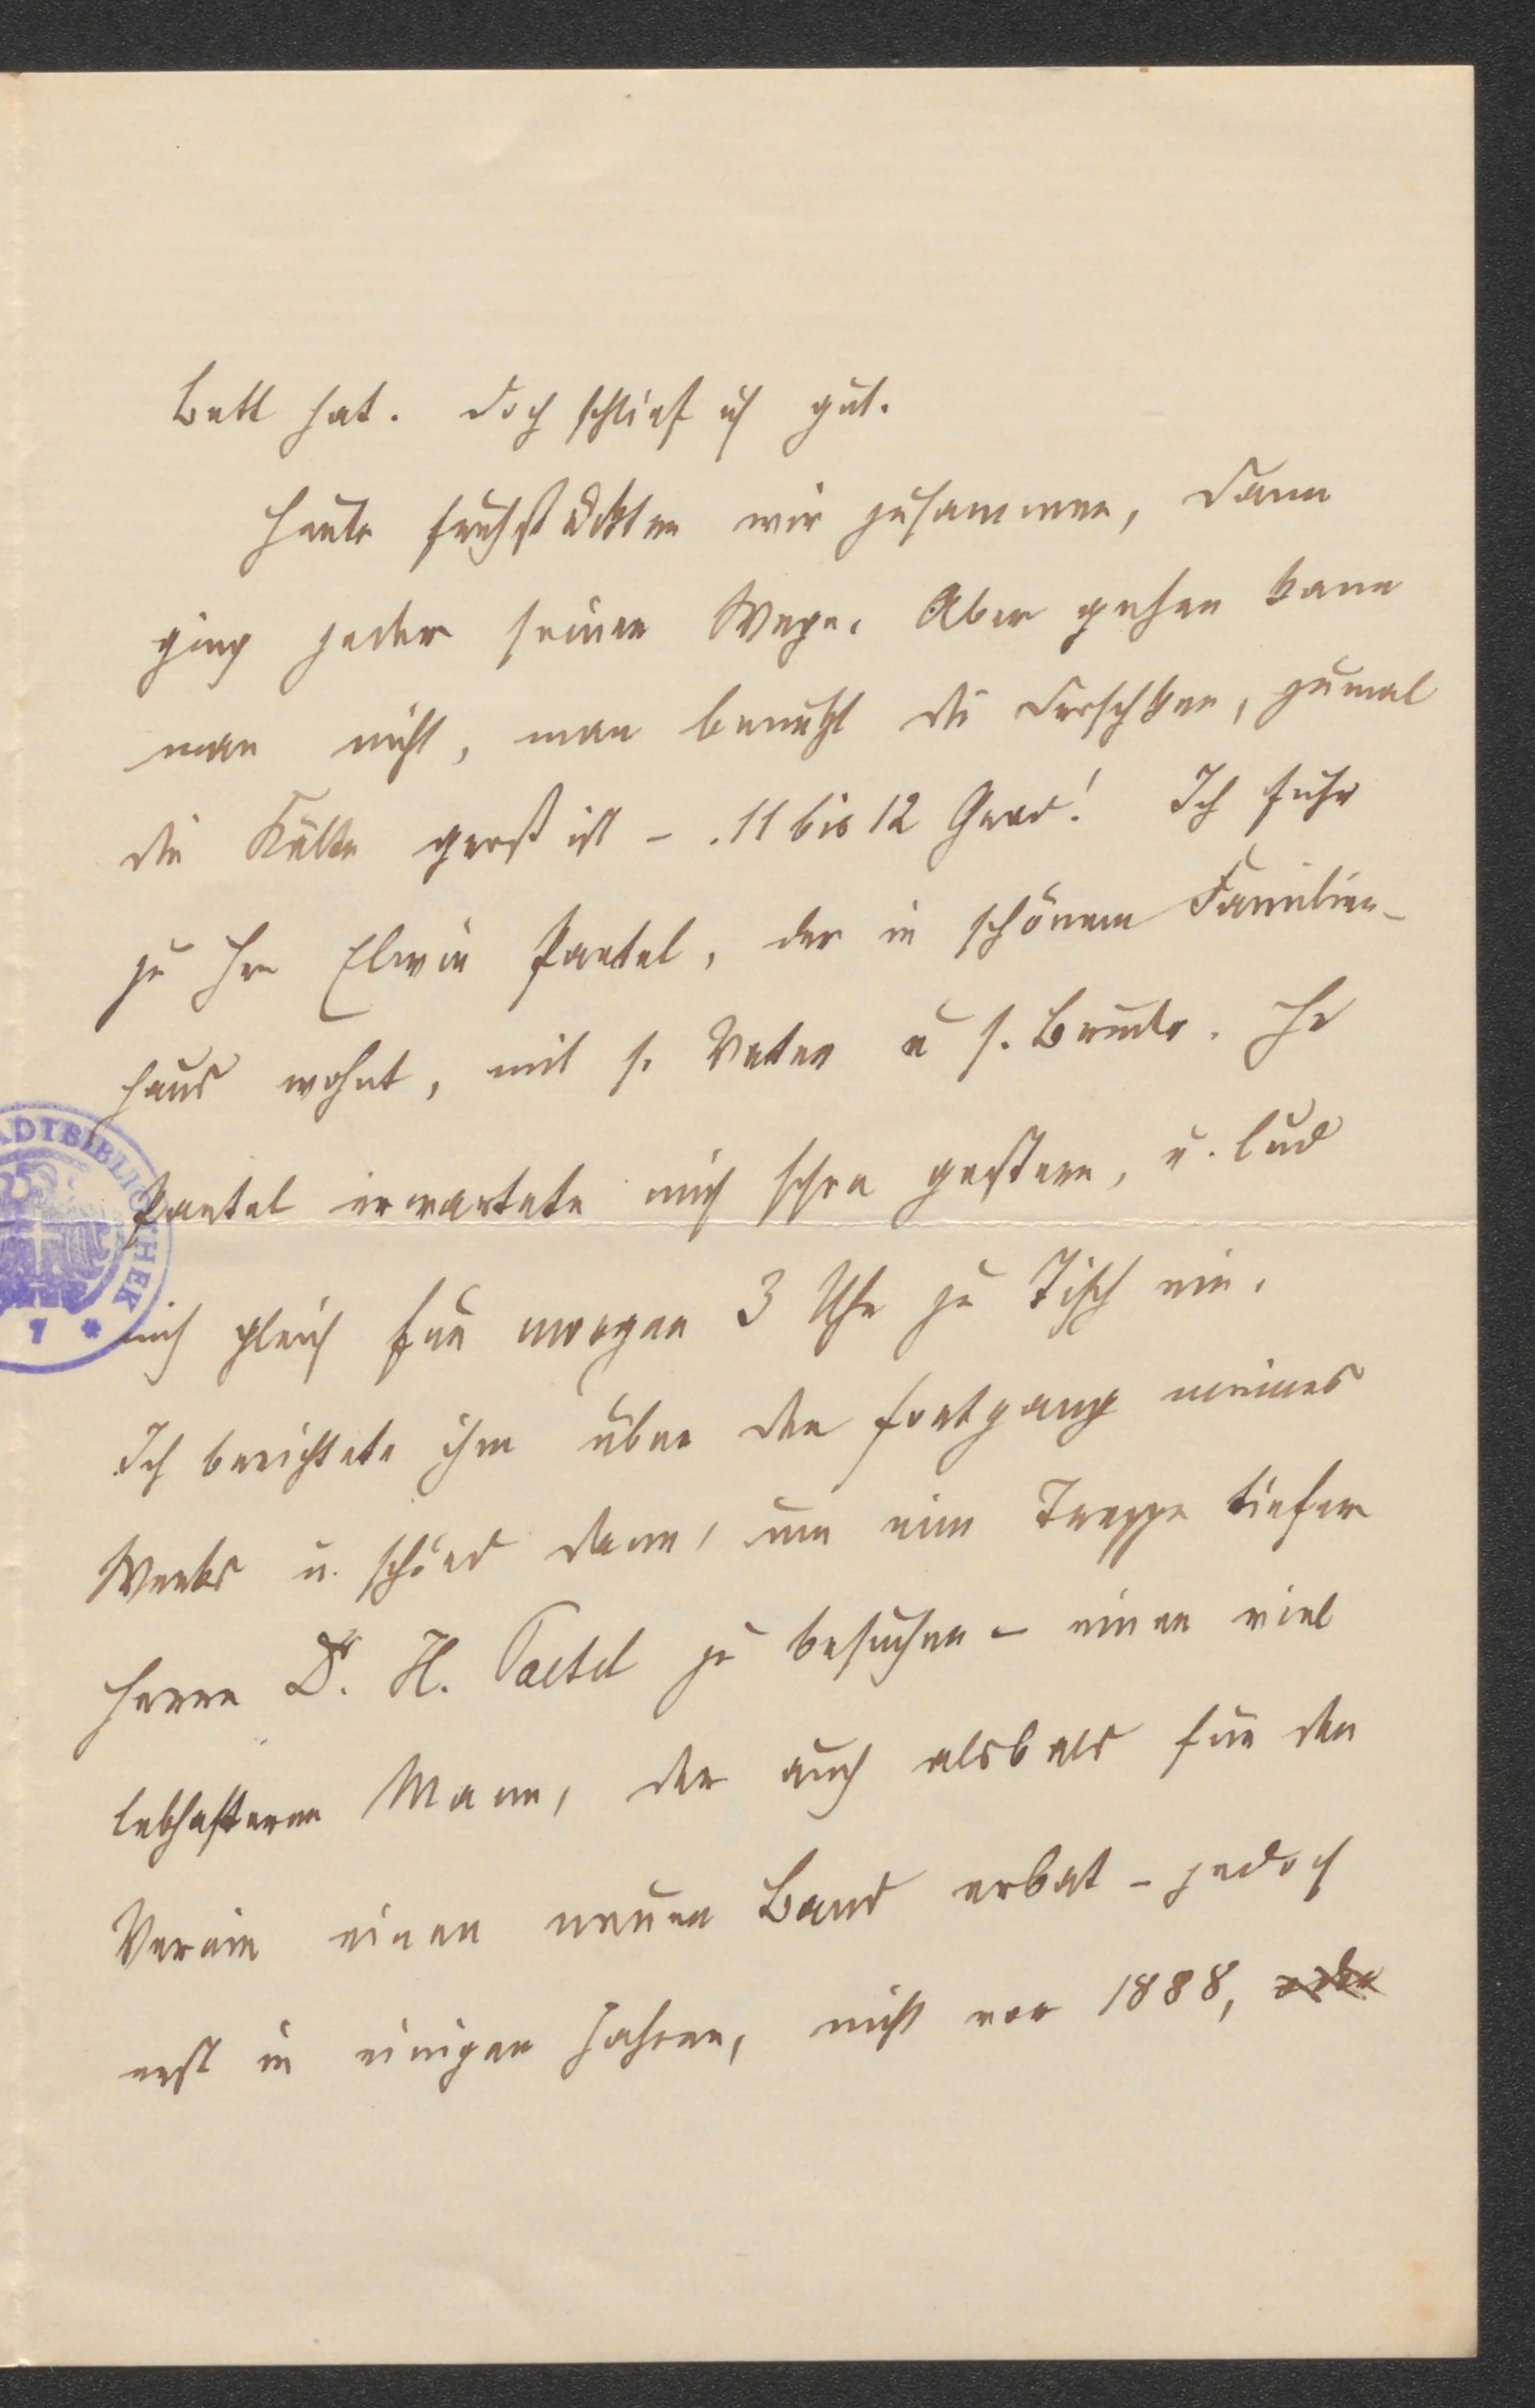 Bett hat. Doch schlief ich gut.
Heute frühstückten wir zusammen, dann
ging jeder seiner Wege. Aber gehen kann
man nicht, man benutzt die Droschken, zumal
die Kälte groß ist – . 11 bis 12 Grad! Ich fuhr
zu Hrn Elwin Paetel, der in schönem Familien-
haus wohnt, mit s. Vater u s. Bruder. Hr
Paetel erwartete mich schon gestern, u. lud
mich gleich für morgen 3 Uhr zu Tisch ein.
Ich berichtete ihm über den Fortgang meines
Werkes u. schied dann, um eine Treppe tiefer
Herrn Dr. H. Paetel zu besuchen – einen viel
lebhafteren Mann, der auch alsbald für den
Verein einen neuen Band erbat – jedoch
erst in einigen Jahren, nicht vor 1888, oder
STADTBIBLIOTHEK